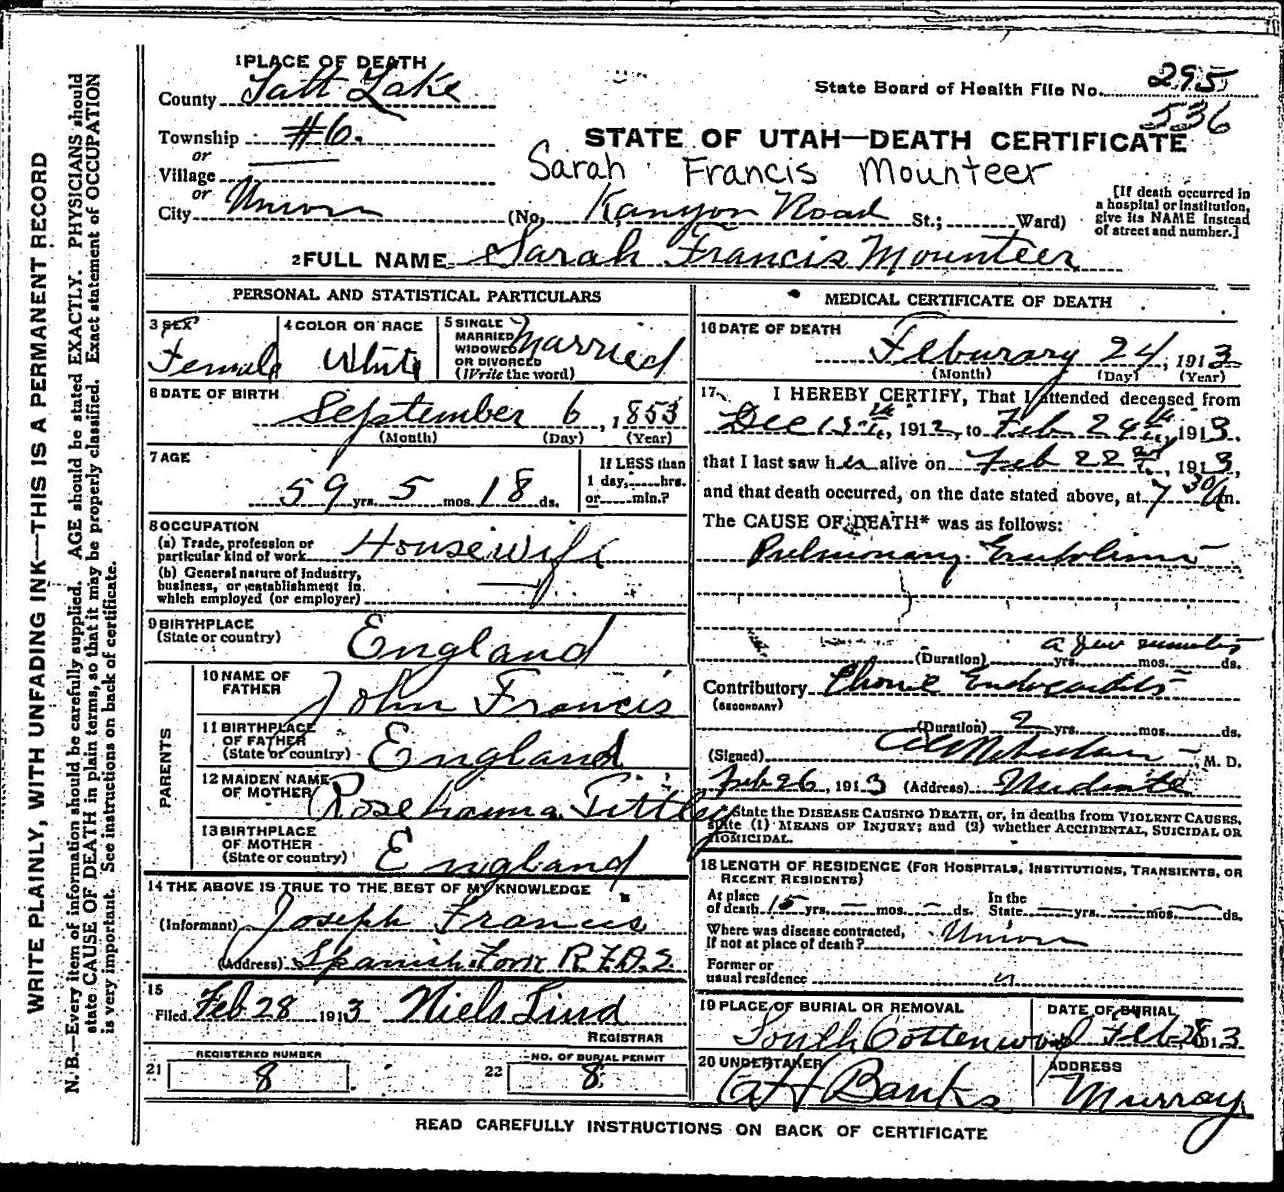 1 PLACE OF DEATH
County Salt Lake
Township #6.
or
Village
or
City Union
State Board of Health File No. 295
536
STATE OF UTAH—DEATH CERTIFICATE
Sarah Francis Mounteer
(No. Kanyon Road St.; Ward)
[If death occurred in
a hospital or institution,
give its NAME instead
of street and number.]
2 FULL NAME Sarah Francis Mounteer
PERSONAL AND STATISTICAL PARTICULARS
3 SEX
Female
4 COLOR OR RACE
White
5 SINGLE
MARRIED
WIDOWED
OR DIVORCED
(Write the word)
Married
6 DATE OF BIRTH
September 6, 1853
(Month) (Day) (Year)
7 AGE
59 yrs. 5 mos. 18 ds.
If LESS than
1 day, hrs.
or min.?
8 OCCUPATION
(a) Trade, profession or
particular kind of work Housewife
(b) General nature of industry,
business, or establishment in
which employed (or employer)
9 BIRTHPLACE
(State or country) England
PARENTS
10 NAME OF
FATHER John Francis
11 BIRTHPLACE
OF FATHER
(State or country) England
12 MAIDEN NAME
OF MOTHER Rosehanna Tittley
13 BIRTHPLACE
OF MOTHER
(State or country) England
14 THE ABOVE IS TRUE TO THE BEST OF MY KNOWLEDGE
(Informant) Joseph Francis
(Address) Spanish Fork R.F.D.2
15
Filed Feb 28 1913 Niels Lind
REGISTRAR
21 REGISTERED NUMBER
8
22 NO. OF BURIAL PERMIT
8
MEDICAL CERTIFICATE OF DEATH
16 DATE OF DEATH
Feburary 24, 1913
(Month) (Day) (Year)
17 I HEREBY CERTIFY, That I attended deceased from
Dec 15th, 1912, to Feb 24th, 1913.
that I last saw her alive on Feb 22nd, 1913,
and that death occurred, on the date stated above, at 7 30 A m.
The CAUSE OF DEATH* was as follows:
Pulmonary Embolism
a few minutes
(Duration) yrs. mos. ds.
Contributory Chronic Endocarditis
(SECONDARY)
(Duration) 2 yrs. mos. ds.
(Signed) M. D.
Feb 26, 1913 (Address) Midvale
* State the DISEASE CAUSING DEATH, or, in deaths from VIOLENT CAUSES,
state (1) MEANS OF INJURY; and (2) whether ACCIDENTAL, SUICIDAL OR
HOMICIDAL.
18 LENGTH OF RESIDENCE (FOR HOSPITALS, INSTITUTIONS, TRANSIENTS, OR
RECENT RESIDENTS)
At place
of death 15 yrs. — mos. — ds.
In the
State — yrs. — mos. — ds.
Where was disease contracted,
If not at place of death? Union
Former or
usual residence "
19 PLACE OF BURIAL OR REMOVAL
South Cottenwood
DATE OF BURIAL
Feb 28 1913.
20 UNDERTAKER
A H Banks
ADDRESS
Murray
READ CAREFULLY INSTRUCTIONS ON BACK OF CERTIFICATE
WRITE PLAINLY, WITH UNFADING INK—THIS IS A PERMANENT RECORD
N. B.—Every item of information should be carefully supplied. AGE should be stated EXACTLY. PHYSICIANS should
state CAUSE OF DEATH in plain terms, so that it may be properly classified. Exact statement of OCCUPATION
is very important. See instructions on back of certificate.